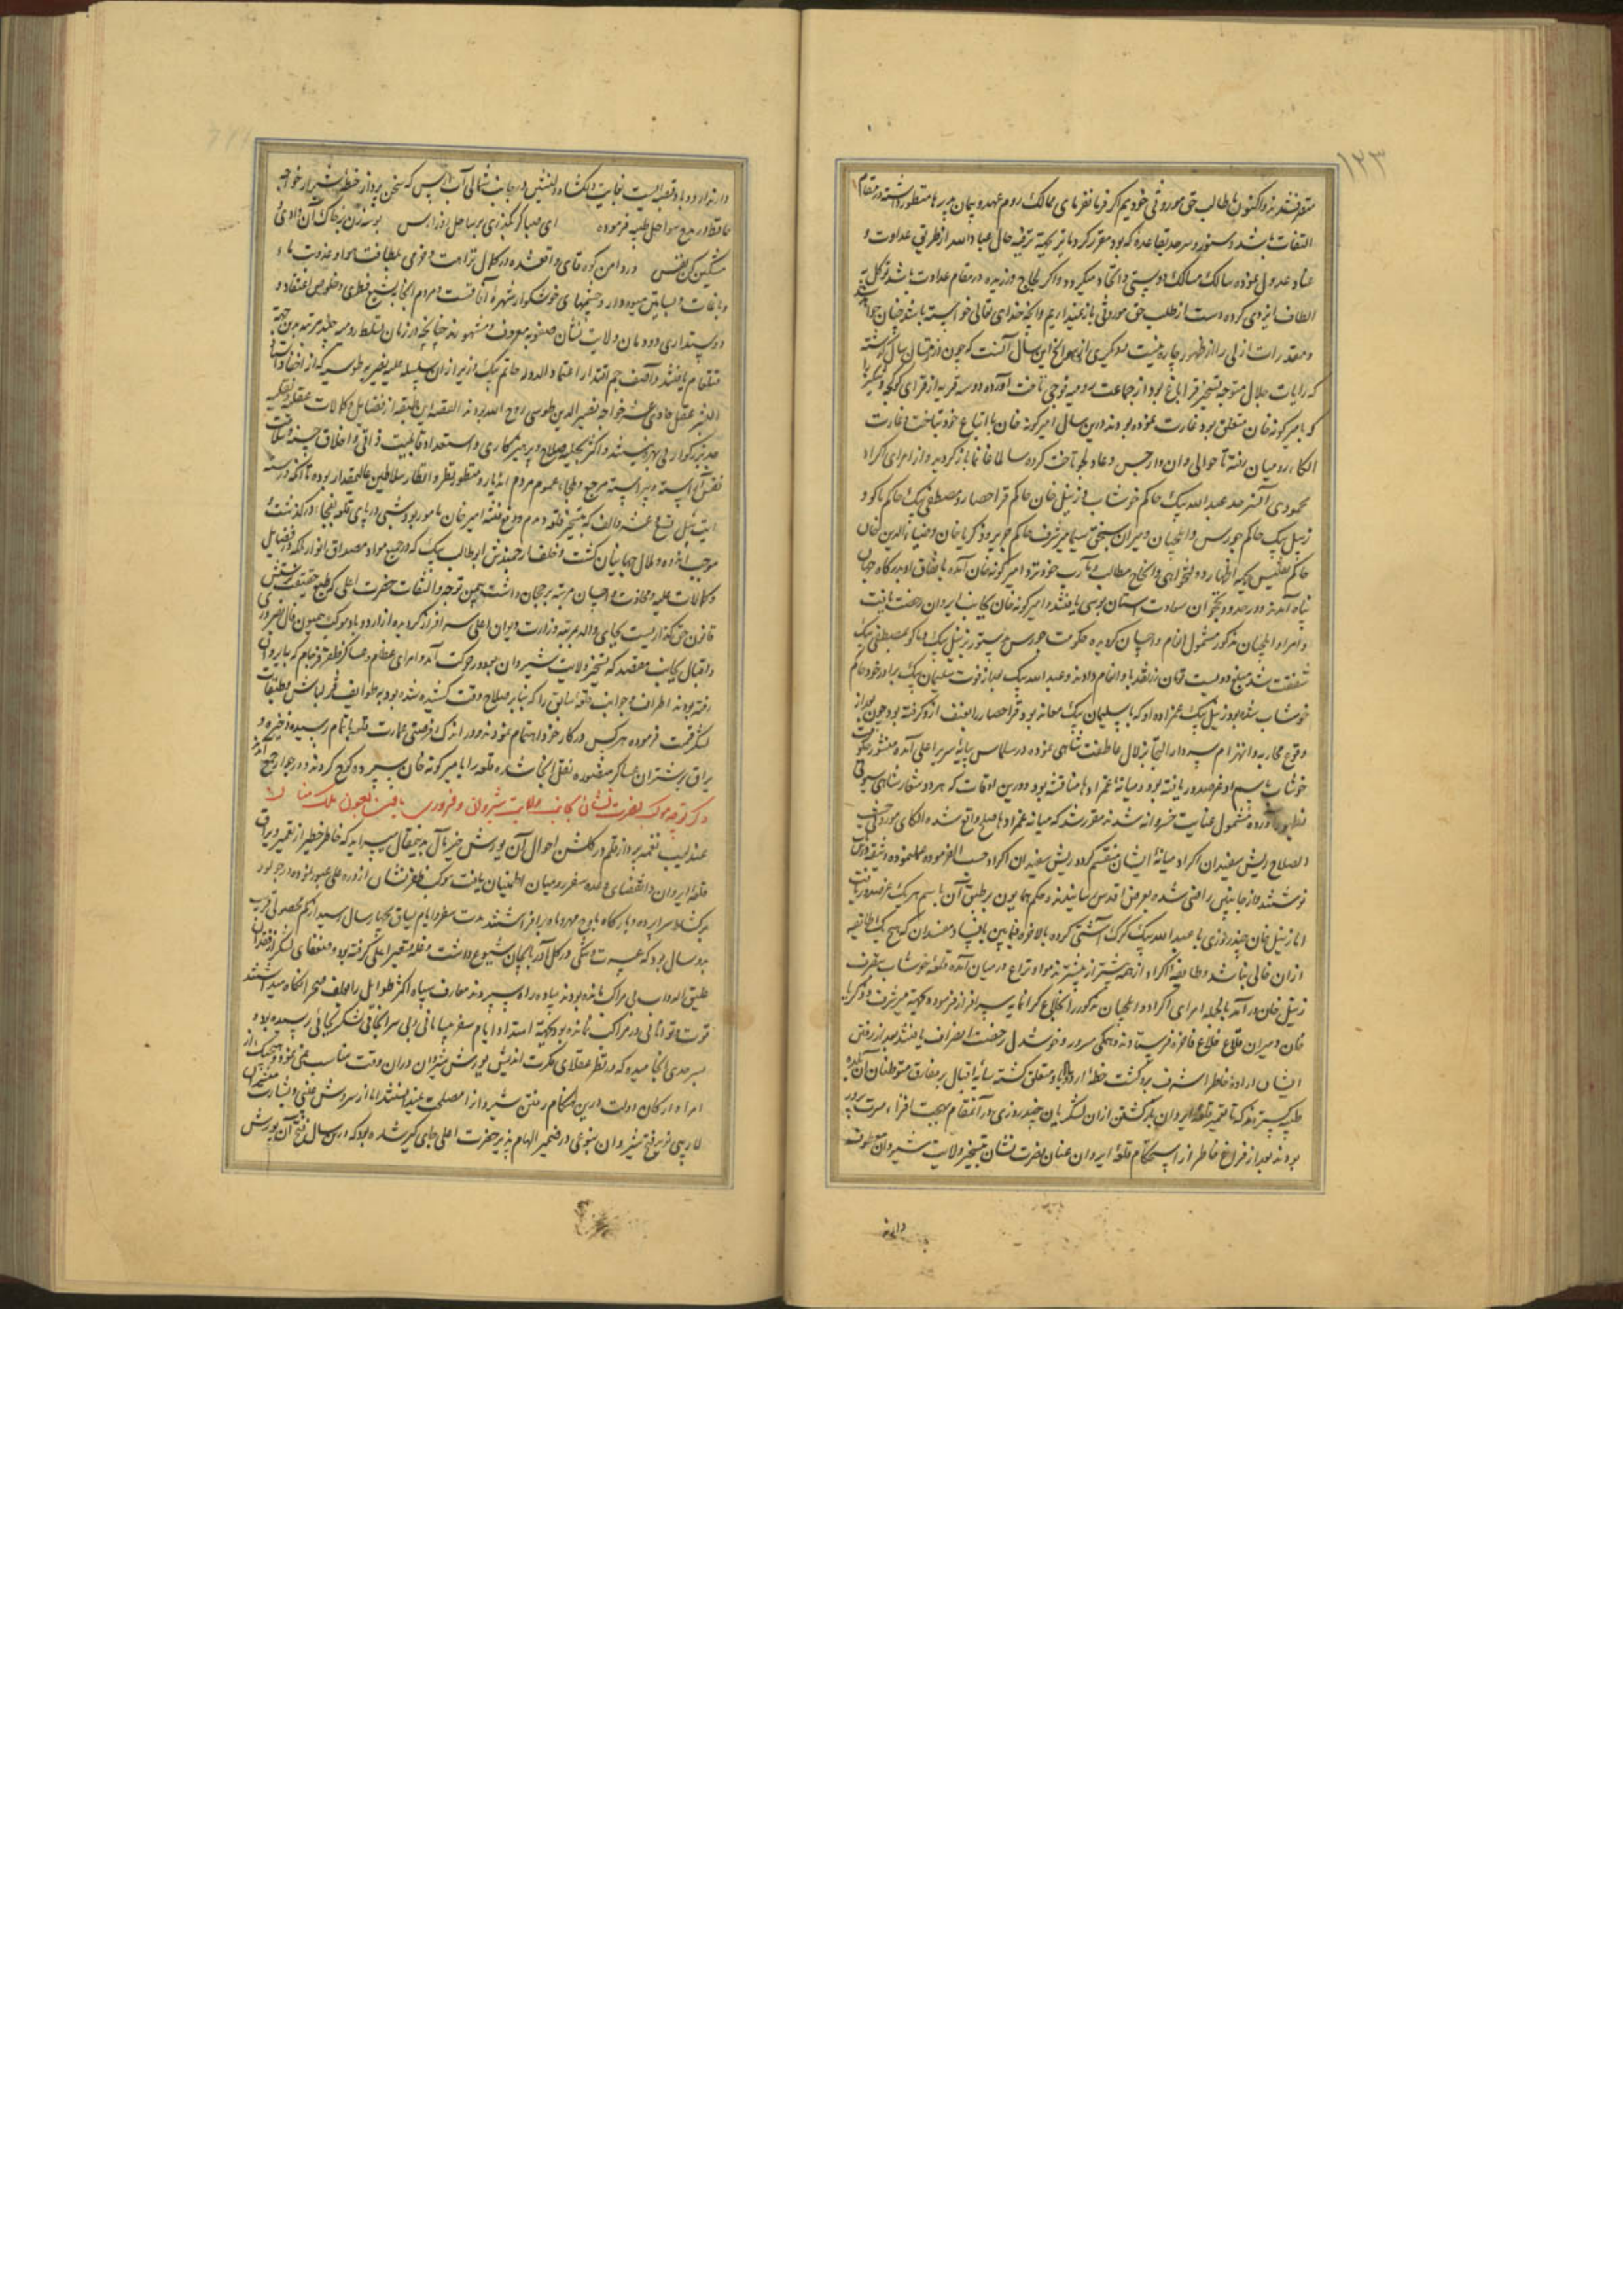 ۱۲۳
متفق شده‌اند و اکنون ما طالب حق موروثی خودیم اگر فرمانفرمای ممالک روم عهد و پیمان پدر ما منظور داشته در مقام
التفات باشد و سنور و سرحد بقاعده که بود مقرر گرداند بجهة ترفیه حال عباد الله از طریق عداوت و
عناد عدول نموده سالک مسالک دوستی و اتحاد میگردد و اگر بلجاج ورزیده در مقام عداوت باشد توکل به
الطاف ایزدی کرده دست از طلب حق موروثی باز نمیداریم و آنچه خدای تعالی خواسته باشد چنان خواهد شد
و مقدرات ازلی را از ظهور چاره نیست دیگری از سوانح این سال آنست که چون در قوئیل سال گذشته
که رایات جلال متوجه تسخیر قراباغ بود از جماعت رومیه فوجی تاخت آورده دو سه قریه از قرای گوگجه دنگیز را
که بامیر گونه خان متعلق بود غارت نموده بودند درین سال امیر گونه خان با اتباع خود بتاخت و غارت
الکاء رومیان رفته تا حوالی وان و ارجیس و عادلجوز تاخت کرده سالما غانما باز گردید و از امرای اکراد
محمودی آنفر حد عبد الله بیک حاکم خوشاب و زینل خان حاکم قراحصار و مصطفی بیک حاکم ماکو و
زینل بیک حاکم چورس و ایلچیان و میران سنجق سیما میر شرف حاکم جزیره و زکریا خان و ضیاء الدین خان
حاکم بتلیس که اظهار دولتخواهی و انجاح مطالب و مآرب خود نزد امیر گونه خان آمده باتفاق او بدرگاه جهان
پناه آمدند و در حدود نخجوان سعادت آستان بوسی یافتند و امیر گونه خان بجانب ایروان رخصت یافت
و امرا و ایلچیان مذکور مشمول انعام و احسان گردیده حکومت چورس بدستور بزینل بیک و ماکو بمصطفی بیک
شفقت شد مبلغ دویست تومان زر نقد باو انعام دادند و عبد الله بیک بعد از فوت سلیمان بیک برادر خود حاکم
خوشاب شده بود زینل بیک عمزاده او که با سلیمان بیک معاند بود قراحصار را بعنف ازو گرفته بود چون بعد از
وقوع محاربه و انهزام سردار التجا بزلال عاطفت شاهی نموده در سلماس بپایه سریر اعلی آمده منشور حکومت
خوشاب باسم او عز صدور یافته بود و میانه عمزادها مناقشه بود و درین اوقات که هر دو شعار شاهی سیونی
بظهور آورده مشمول عنایت خسروانه شدند مقرر شد که میانه عمزادها صلح واقع شده الکای موروثی حسب
الصلاح ریش سفیدان اکراد میانه ایشان منقسم گردد ریش سفیدان اکراد حسب الفرموده عمل نموده وثیقه درین
نوشتند و از جانبین راضی شده بعرض اقدس رسانیدند و حکم همایون بر طبق آن باسم هر یک عز صدور یافت
اما زینل خان چند روزی با عبد الله بیک گرگ آشتی کرده بالاخره فیمابین بافساد مفسدان که هیچ یک طایفه
ازان خالی نباشد و طایفه اکراد از همه بیشتر از پیشتر ماده نزاع در میان آمده قلعه خوشاب بتصرف
زینل خان در آمد بالجمله امرای اکراد و ایلچیان مذکور را بخلاع گرانمایه سرافراز فرموده بجهة میر شرف و زکریا
خان و میران قلاع خلاع فاخره فرستادند و همگی مسرور و خوشدل رخصت انصراف یافتند بعد از رفتن
ایشان اراده خاطر اشرف بر گشت خطه اردوباد متعلق گشته سایه اقبال بر مفارق متوطنان آن بلده
طیبه گستردند که تا تعمیر قلعه ایروان و برگشتن ازان لشکریان چند روزی در آنمقام بهجت افزا، مسرت پذیر
بوده بعد از فراغ خاطر از استحکام قلعه ایروان عنان نصرت نشان بتسخیر ولایت شیروان معطوف
دارند
دارند اردوباد قصبه ایست بغایت دلکشا و دلنشین در جانب شمالی آب ارس که سخن پرداز خطه شیراز خواجه
حافظ در مدح سواحل طیبه فرموده ای صبا گر بگذری بر ساحل رود ارس بوسه زن بر خاک آن وادی و
مشکین کن نفس و در دامن کوه قبای واقعشده در کمال نزاهت و خرمی بلطافت هوا و عذوبت ماء
و باغات و بساتین میوه‌دار و چشمهای خوشگوار شهره آفاقست و مردم آنجا بتشیع فطری و خلوص اعتقاد و
دوستداری دودمان ولایت نشان صفویه معروف و مشهورند چنانچه در زمان تسلط رومیه چند مرتبه بدین جهة
قتلعام یافتند و آصف جم اقتدار اعتماد الدوله حاتم بیک وزیر ازان سلسله علیه نصیریه طوسیه که از احفاد استاد
البشر عقل حادی عشر خواجه نصیر الدین طوسی روح الله روحه القصه این طبقه از فضایل و کمالات عقلیه و نقلیه
جد بزرگوار بی بهره نیستند و اکثر بحلیه صلاح و پرهیزکاری و استعداد قابلیت ذاتی و اخلاق حسنه و سلامت
نفس آراسته و پیراسته مرجع و ملجاء عموم مردم آندیار و منظور نظر و انظار سلاطین عالیمقدار بوده تا آنکه در سنه
ایت ئیل تسع عشر و الف که بتسخیر قلعه دمدم و دفع فتنه امیر خان مامور بود شبی در پای قلعه بفجاء درگذشت و
موجب اندوه و ملال جهانیان گشت و خلف ارجمندش ابوطالب بیک که در جمیع مواد مصداق انوار ملکه و فضایل
و کمالات علیه و مجاذت و احسان مرتبه رجحان داشت بیمن توجه و التفات حضرت اعلی که طبع حقیقت منش
قانون حق گذاریست بجای والد بمرتبه وزارت دیوان اعلی سرافراز گردیده از اردوباد موکب همیون فال بفیروزی
و اقبال بجانب مقصد که تسخیر ولایت شیروان بود در حرکت آمد و امرای عظام و عساکر ظفر فرجام که بایروان
رفته بودند اطراف و جوانب قلعه سابق را که بنابر صلاح وقت کنده شده بود بر طوایف قزلباش و طبقات
لشکر قسمت فرموده هر کس در کار خود اهتمام نموده در اندک فرصتی عمارت قلعه باتمام رسیده ذخیره و
یراق بر شتران عساکر منصوره نقل آنجا شده قلعه را بامیر گونه خان سپرده کوچ کردند و در جوار چخ آمدند
ذکر توجه موکب نصرت نشان بجانب ولایت شیروان و فیروزی یافتن بعون ملک منان
عندلیب نغمه پرداز قلم در گلشن احوال آن یورش خیر مآل بدینمقال میسراید که خاطر خطیر از تعمیر و یراق
قلعه ایروان و انقضای وعده سفر رومیان اطمینان یافت موکب ظفر نشان از دره علی عبور نموده در جوبور
برگشاد سراپرده و بارگاه باوج مهر و ماه برافراشتند مدت سفر و ایام یساق بچهار سال رسید از کم محصولی قریب
بدو سال بود که عسرت و تنگی در کل آذربایجان شیوع داشت و غله تسعیر اعلی گرفته بود و ضعفای لشکر از فقدان
علیق الدواب بی مراکب مانده بودند پیاده راه سپر بودند معارف سپاه اکثر طوایل را بعلف صحرا نگاه میداشتند
قوت و توانائی در مراکب نمانده بود بجهة امتداد ایام سفر بی سامانی و بی سرانجامی لشکر بجائی رسیده بود و
بسرحدی انجامیده که در نظر عقلای حکمت اندیش یورش شیروان دران وقت مناسب نمی نمود و هیچیک از
امراء و ارکان دولت درین هنگام رفتن شیروان را مصلحت نمیدانستند اما از سروش غیبی و بشارت مبشران
لاریبی نوید فتح شیروان بنوعی در ضمیر الهام پذیر حضرت اعلی جای گیر شده بود که در این سال فسخ آن یورش